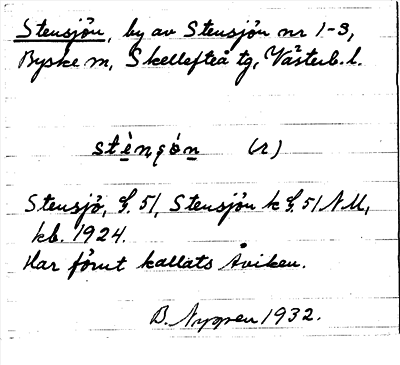 Stensjön, by av Stensjön nr 1-3,
Byske sn, Skellefteå tg, Västerb. l.
stènsǫ́n (r)
Stensjö, G. 51, Stensjön k G. 51 NU,
kb. 1924.
Har förut kallats Åviken.
B. Nygren 1932.